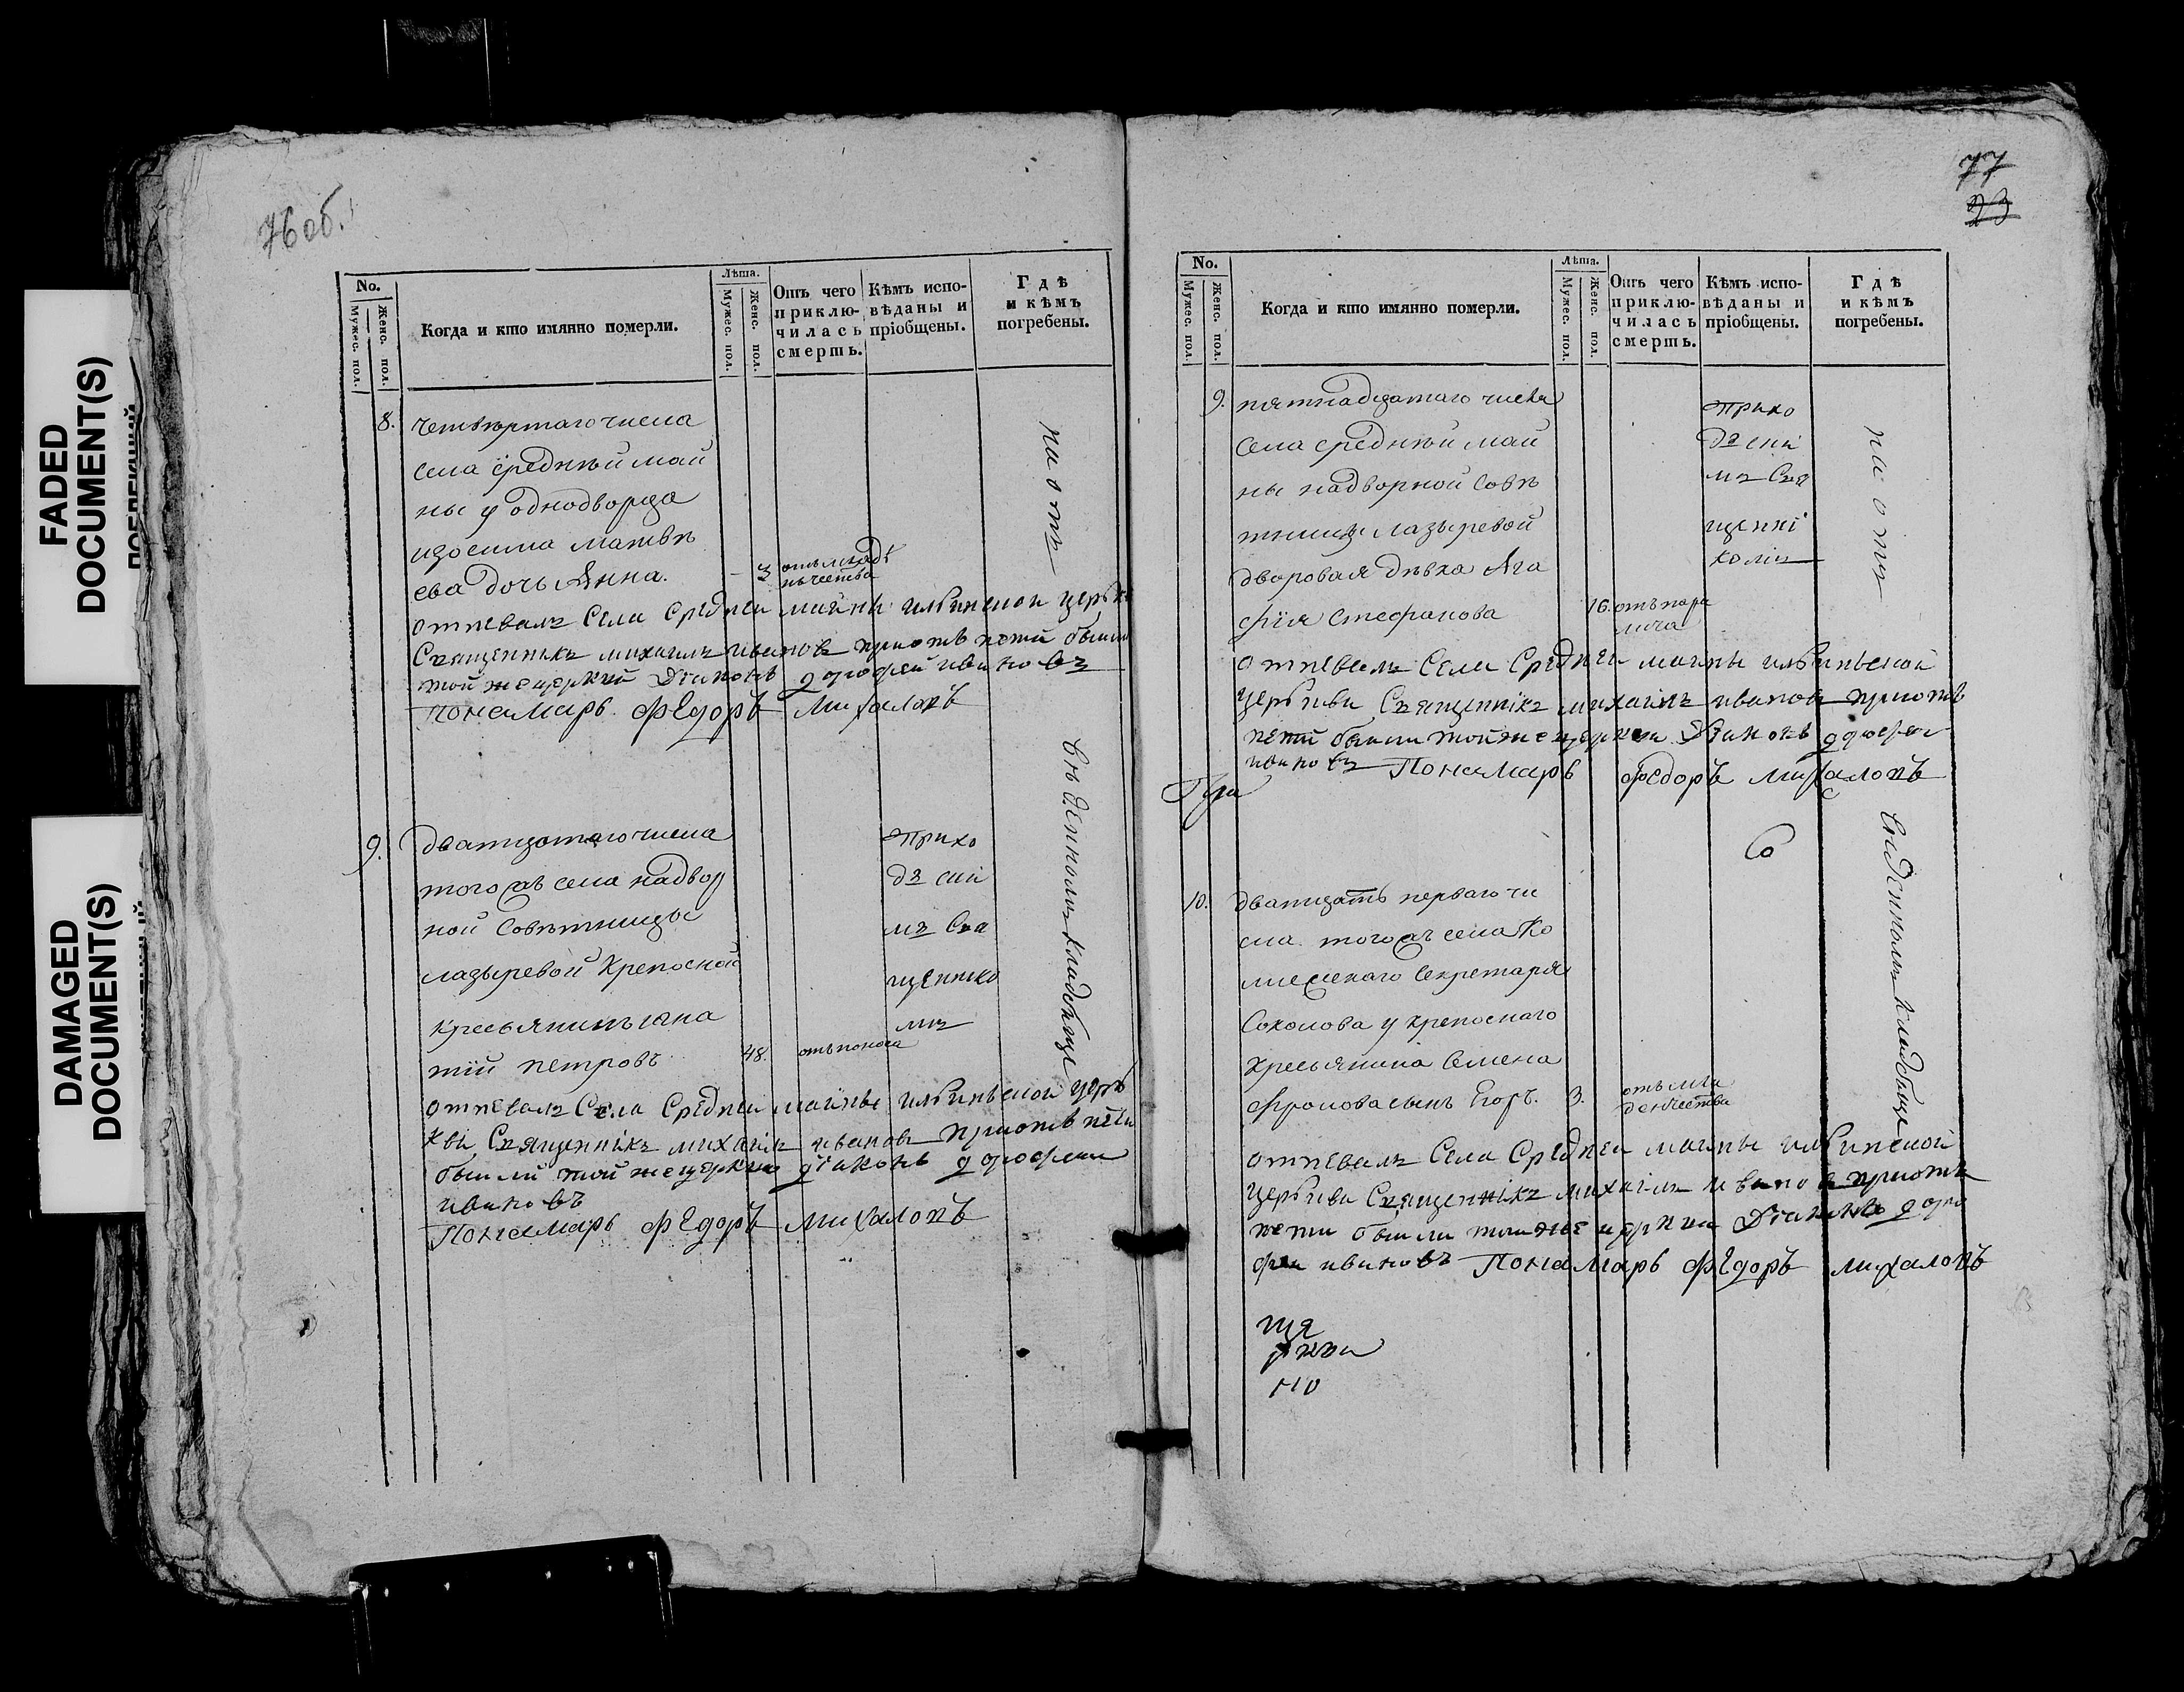 FADED
DOCUMENT(S)
DAMAGED
DOCUMENT(S)
76 об.
No.
Мужес. пол.
Женс. пол.
Когда и кто имянно померли.
Лѣта.
Мужес. пол.
Женс. пол.
Отъ чего
приклю-
чилась
смерть.
Кѣмъ испо-
вѣданы и
пріобщены.
Гдѣ
и кѣмъ
погребены.
8.
четвертаго числа
села средней май
ны у однодворца
изосима матвѣ
ева дочь Анна.
3
отъ младѣ
нчества
на отв
отпевалъ Села Средней майны ильинской церкв
Священникъ михаилъ иванов приотпетй были
той же церкви Дьяконъ иванов
Пономарь Федоръ Михаловъ
9.
дватцатаго числа
того жъ села надвор
ной советницы
лазыревой крепосной
кресьянинъ
тій петровъ
48.
отъ поноса
Прихо
дз ски
мъ Свя
щеннико
мъ
кладбище
отпевалъ Села Средней майны ильинской церь
кви Священникъ михаилъ иванов приотпети
были той же церкви дьяконъ
ивановъ
Пономарь Федоръ Михаловъ
77
23
No.
Мужес. пол.
Женс. пол.
Когда и кто имянно померли.
Лѣта.
Мужес. пол.
Женс. пол.
Отъ чего
приклю-
чилась
смерть.
Кѣмъ испо-
вѣданы и
пріобщены.
Гдѣ
и кѣмъ
погребены.
9.
пятнадцатаго числа
села средней май
ны надворной совѣ
тницы лазыревой
дворовая дѣвка Ага
фія Стефанова
16.
отъ пара
лича
Прихо
дз ски
мъ Свя
щенні
комъ
на отв
отпевалъ Села Средней майны ильинской
церькви Священнікъ михаилъ иванов приотв
петй были той же церкви Дьяконъ
ивановъ Пономарь Федоръ Михаловъ
10.
дватцать перваго чи
сла того жъ села Ко
лиескаго Секретаря
Соколова у крепоснаго
кресьянина Семена
Фролова сынъ Егоръ.
3.
отъ мла
денчества
кладбище
отпевалъ Села Средней майны ильинской
церькви Священнікъ михаилъ иванов приотв
пети были той же церкви Дьяконъ
ивановъ Пономарь Федоръ Михаловъ